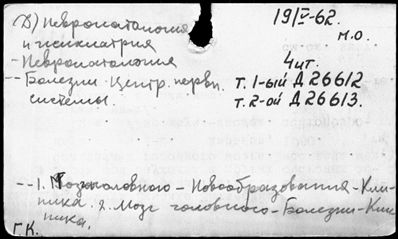 Д) Невропатология
и психиатрия
- Невропатология
-- Болезни центр. нервн.
системы.
19/IV-62.
М.О.
4 чит.
т. 1-ый Д 26612
т. 2-ой Д 26613.
-- 1. Мозг головного - Новообразования - Кли-
ника. 2. Мозг головного - Болезни - Кли-
ника.
Г.К.